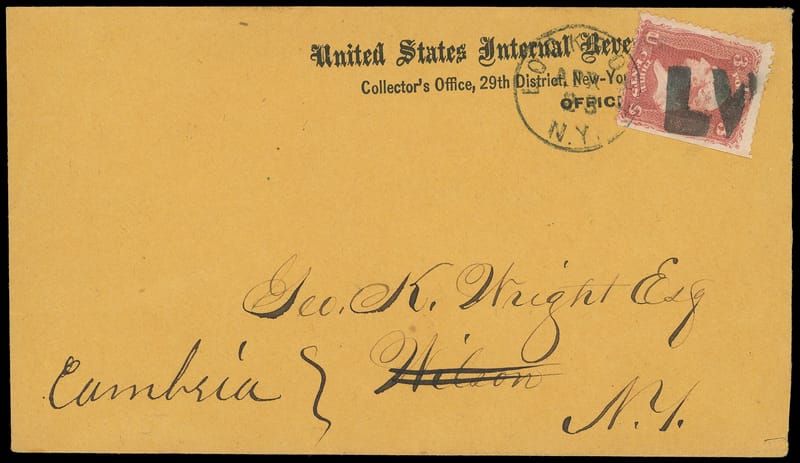 United States Internal Reve
Collector's Office, 29th District, New-Yo
OFFIC
LOCKPO
N.Y.
U 3
LV
Geo. K. Wright Esq
Wilson
Cambria }
N.Y.